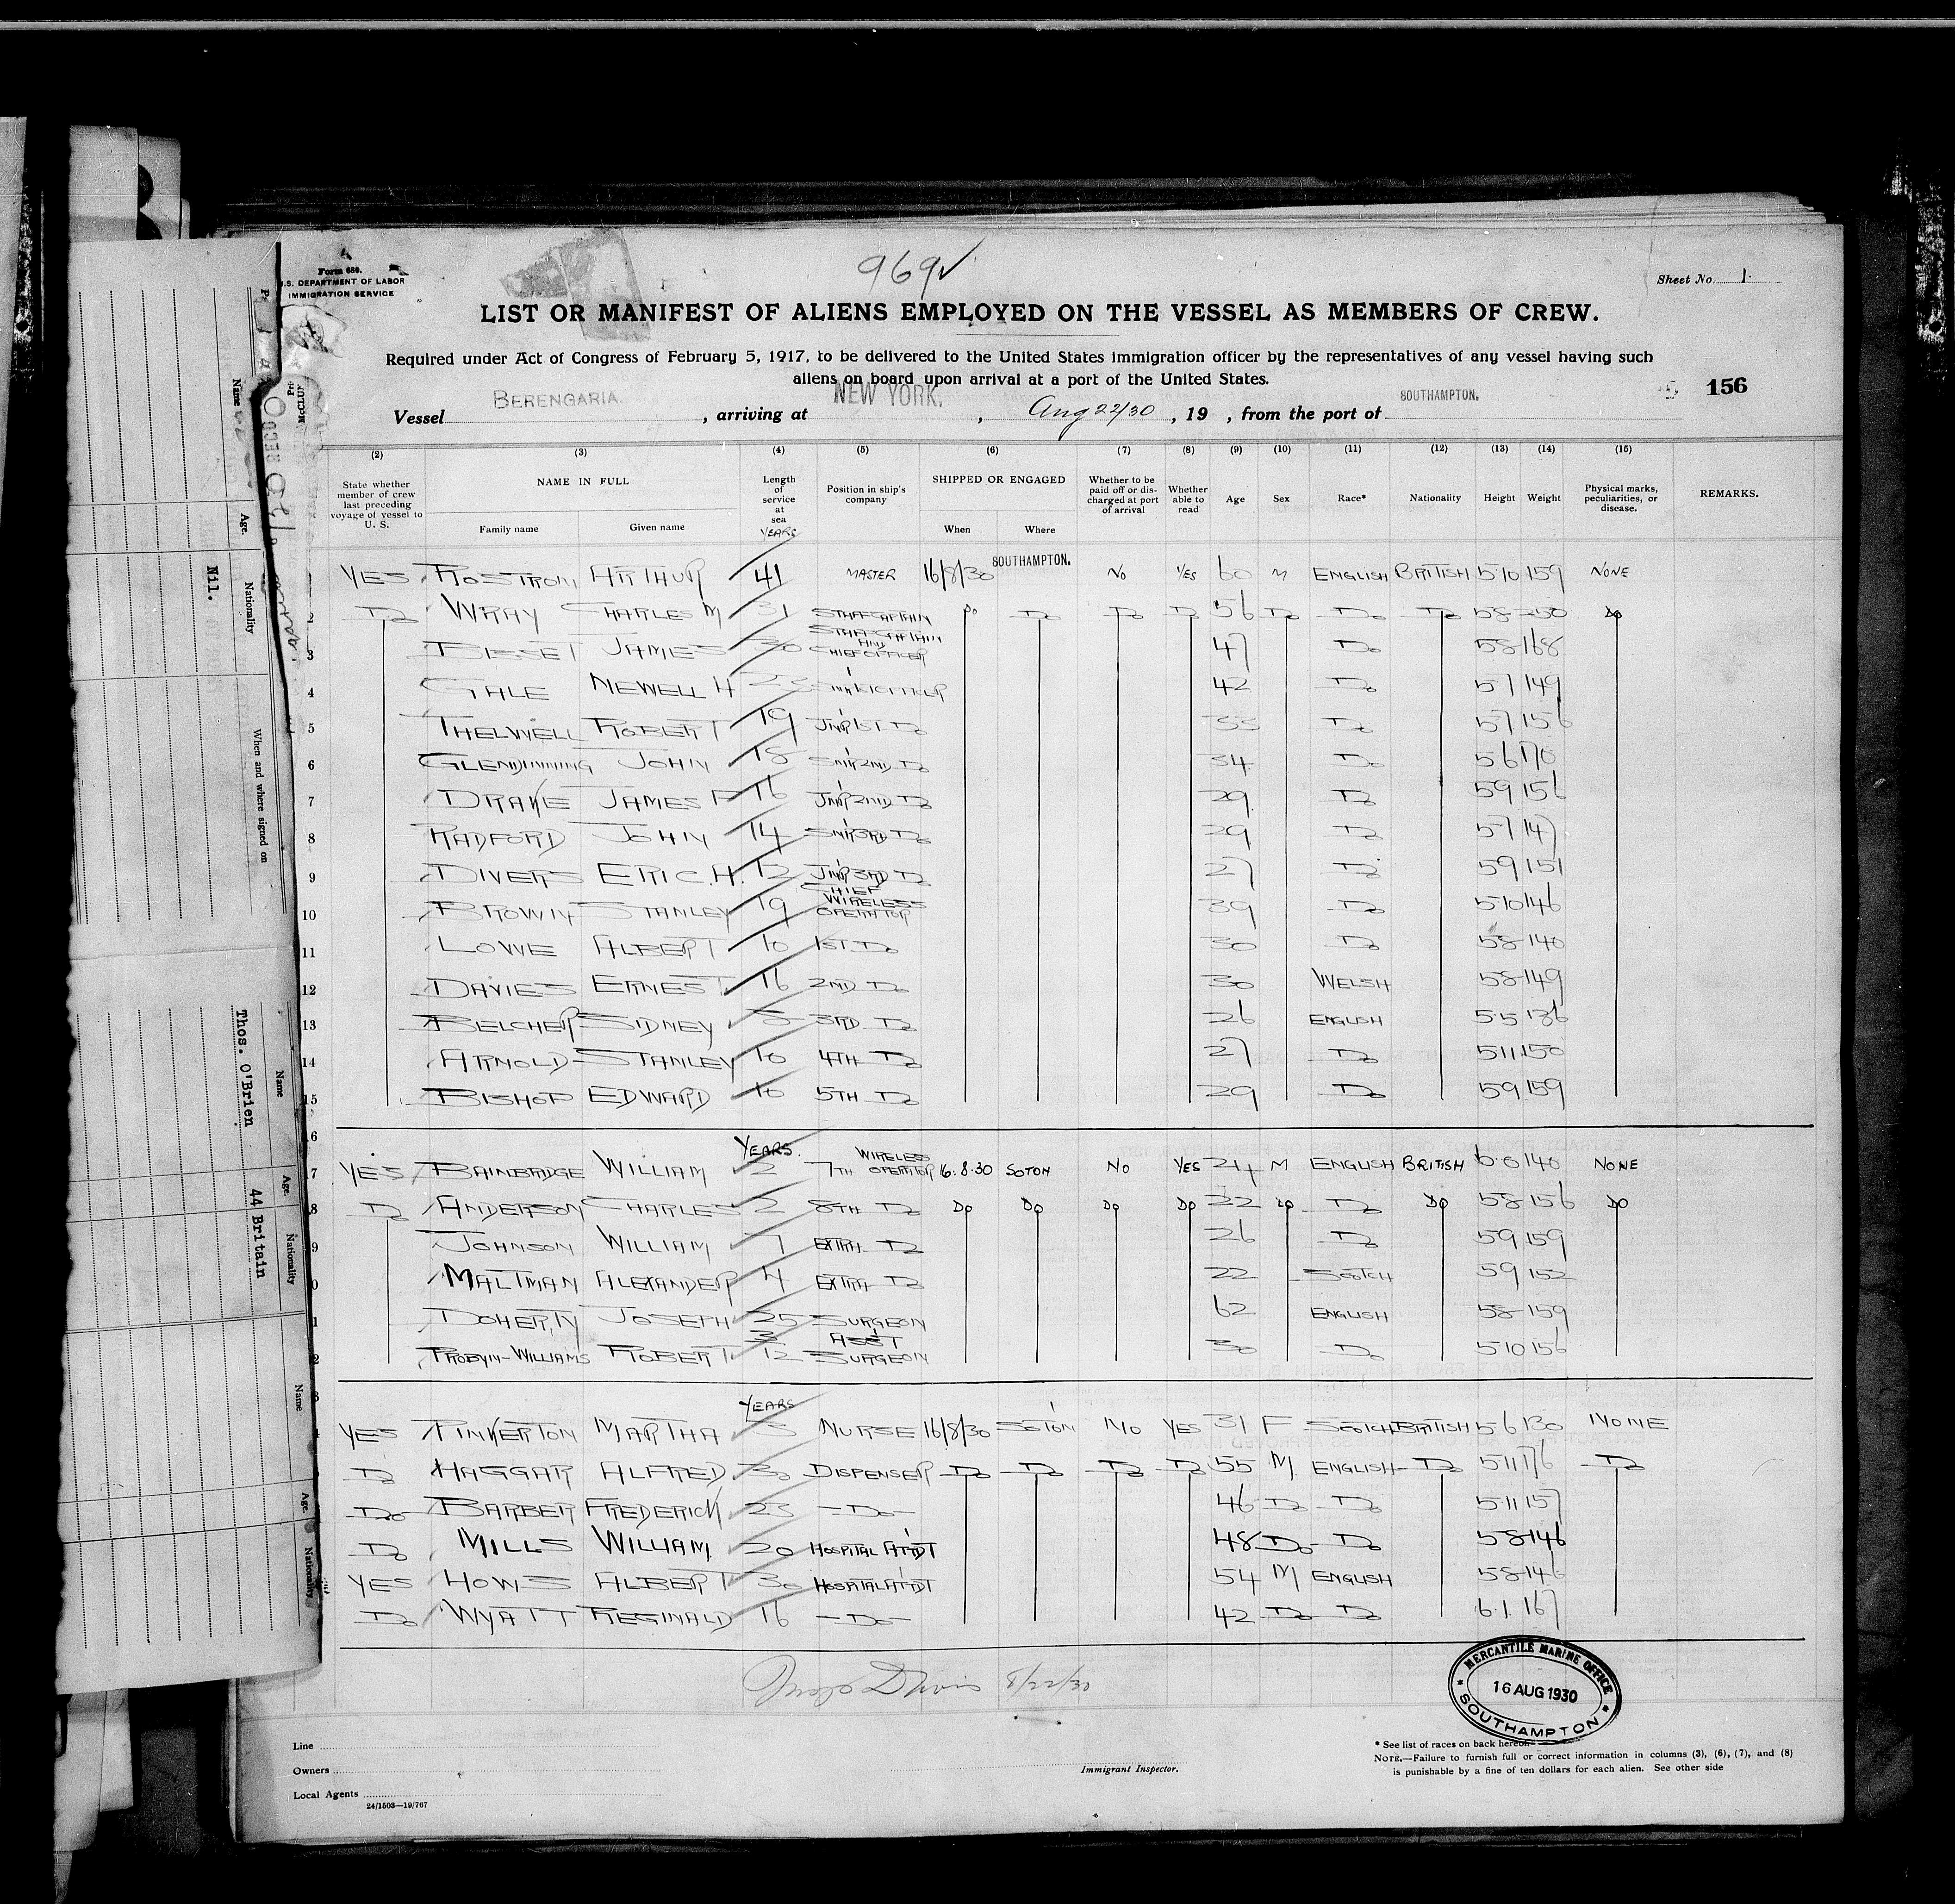 969✓
Form 680.
U.S. DEPARTMENT OF LABOR
IMMIGRATION SERVICE
Sheet No. 1.
LIST OR MANIFEST OF ALIENS EMPLOYED ON THE VESSEL AS MEMBERS OF CREW.
Required under Act of Congress of February 5, 1917, to be delivered to the United States immigration officer by the representatives of any vessel having such
aliens on board upon arrival at a port of the United States.
156
Vessel BERENGARIA. , arriving at NEW YORK. , Aug 22/30 , 19 , from the port of SOUTHAMPTON.
(2) (3) (4) (5) (6) (7) (8) (9) (10) (11) (12) (13) (14) (15)
State whether member of crew last preceding voyage of vessel to U. S. NAME IN FULL Family name Given name Length of service at sea YEARS Position in ship's company SHIPPED OR ENGAGED When Where Whether to be paid off or discharged at port of arrival Whether able to read Age Sex Race* Nationality Height Weight Physical marks, peculiarities, or disease. REMARKS.
YES ROSTRON ARTHUR 41 MASTER 16/8/30 SOUTHAMPTON. NO YES 60 M ENGLISH BRITISH 5·10 159 NONE
2 Do WRAY CHARLES M 31 STAFF CAPTAIN Do Do Do Do 56 Do Do Do 5 8 250 Do
3 BISSET JAMES 30 STAFF CAPTAIN AND CHIEF OFFICER 47 Do 5 8 168
4 GALE NEWELL H 42 Do 5 7 149
5 THELWELL ROBERT 19 JNR 1ST Do Do 5 7 156
6 GLENDINNING JOHN 18 SNR 2ND Do 34 Do 5 6 170
7 DRAKE JAMES F 16 JNR 2ND Do 29 Do 5 9 156
8 RADFORD JOHN 14 SNR 3RD Do 29 Do 5 7 147
9 DIVERS ERIC. H. 12 JNR 3RD Do 27 Do 5 9 151
10 BROWN STANLEY 19 CHIEF WIRELESS OPERATOR 39 Do 5·10 146
11 LOWE ALBERT 10 1ST Do 30 Do 5 8 140
12 DAVIES ERNEST 16 2ND Do 30 WELSH 5 8 149
13 BELCHER SIDNEY 3RD Do 26 ENGLISH 5·5 136
14 ARNOLD STANLEY 10 4TH Do 27 Do 5 11 150
15 BISHOP EDWARD 10 5TH Do 29 Do 5 9 159
6 YEARS.
7 YES BAINBRIDGE WILLIAM 2 7TH WIRELESS OPERATOR 16·8·30 SOTON NO YES 24 M ENGLISH BRITISH 6·0 140 NONE
8 Do ANDERSON CHARLES 2 8TH Do Do Do Do Do 22 Do Do Do 5 8 156 Do
9 JOHNSON WILLIAM 7 EXTRA Do 26 Do 5 9 159
0 MALTMAN ALEXANDER 4 EXTRA Do 22 SCOTCH 5 9 152
1 DOHERTY JOSEPH 25 SURGEON 62 ENGLISH 5 8 159
2 PROBYN-WILLIAMS ROBERT ASS'T SURGEON 30 Do 5·10 156
YEARS
YES PINKERTON MARTHA NURSE 16/8/30 SOTON NO YES 31 F SCOTCH BRITISH 5 6 130 NONE
Do HAGGAR ALFRED 30 DISPENSER Do Do Do Do 55 M. ENGLISH Do 5 11 176 Do
Do BARBER FREDERICK 23 Do 46 Do Do 5 11 157
Do MILLS WILLIAM. 20 HOSPITAL ATT'DT 48 Do Do 5 8 146
YES HOWS ALBERT 30 HOSPITAL ATT'DT 54 M ENGLISH 5 8 146
Do WYATT REGINALD 16 Do 42 Do Do 6·1. 167
8/22/30
MERCANTILE MARINE OFFICE
16 AUG 1930
SOUTHAMPTON
Line
Owners
Local Agents
24/1503—19/767
Immigrant Inspector.
* See list of races on back hereof.
NOTE.—Failure to furnish full or correct information in columns (3), (6), (7), and (8)
is punishable by a fine of ten dollars for each alien. See other side
Name
Age.
Nationality
When and where signed on
Nil.
Name
Age.
Nationality
Thos. O'Brien 44 Britain
Name
Age.
Nationality